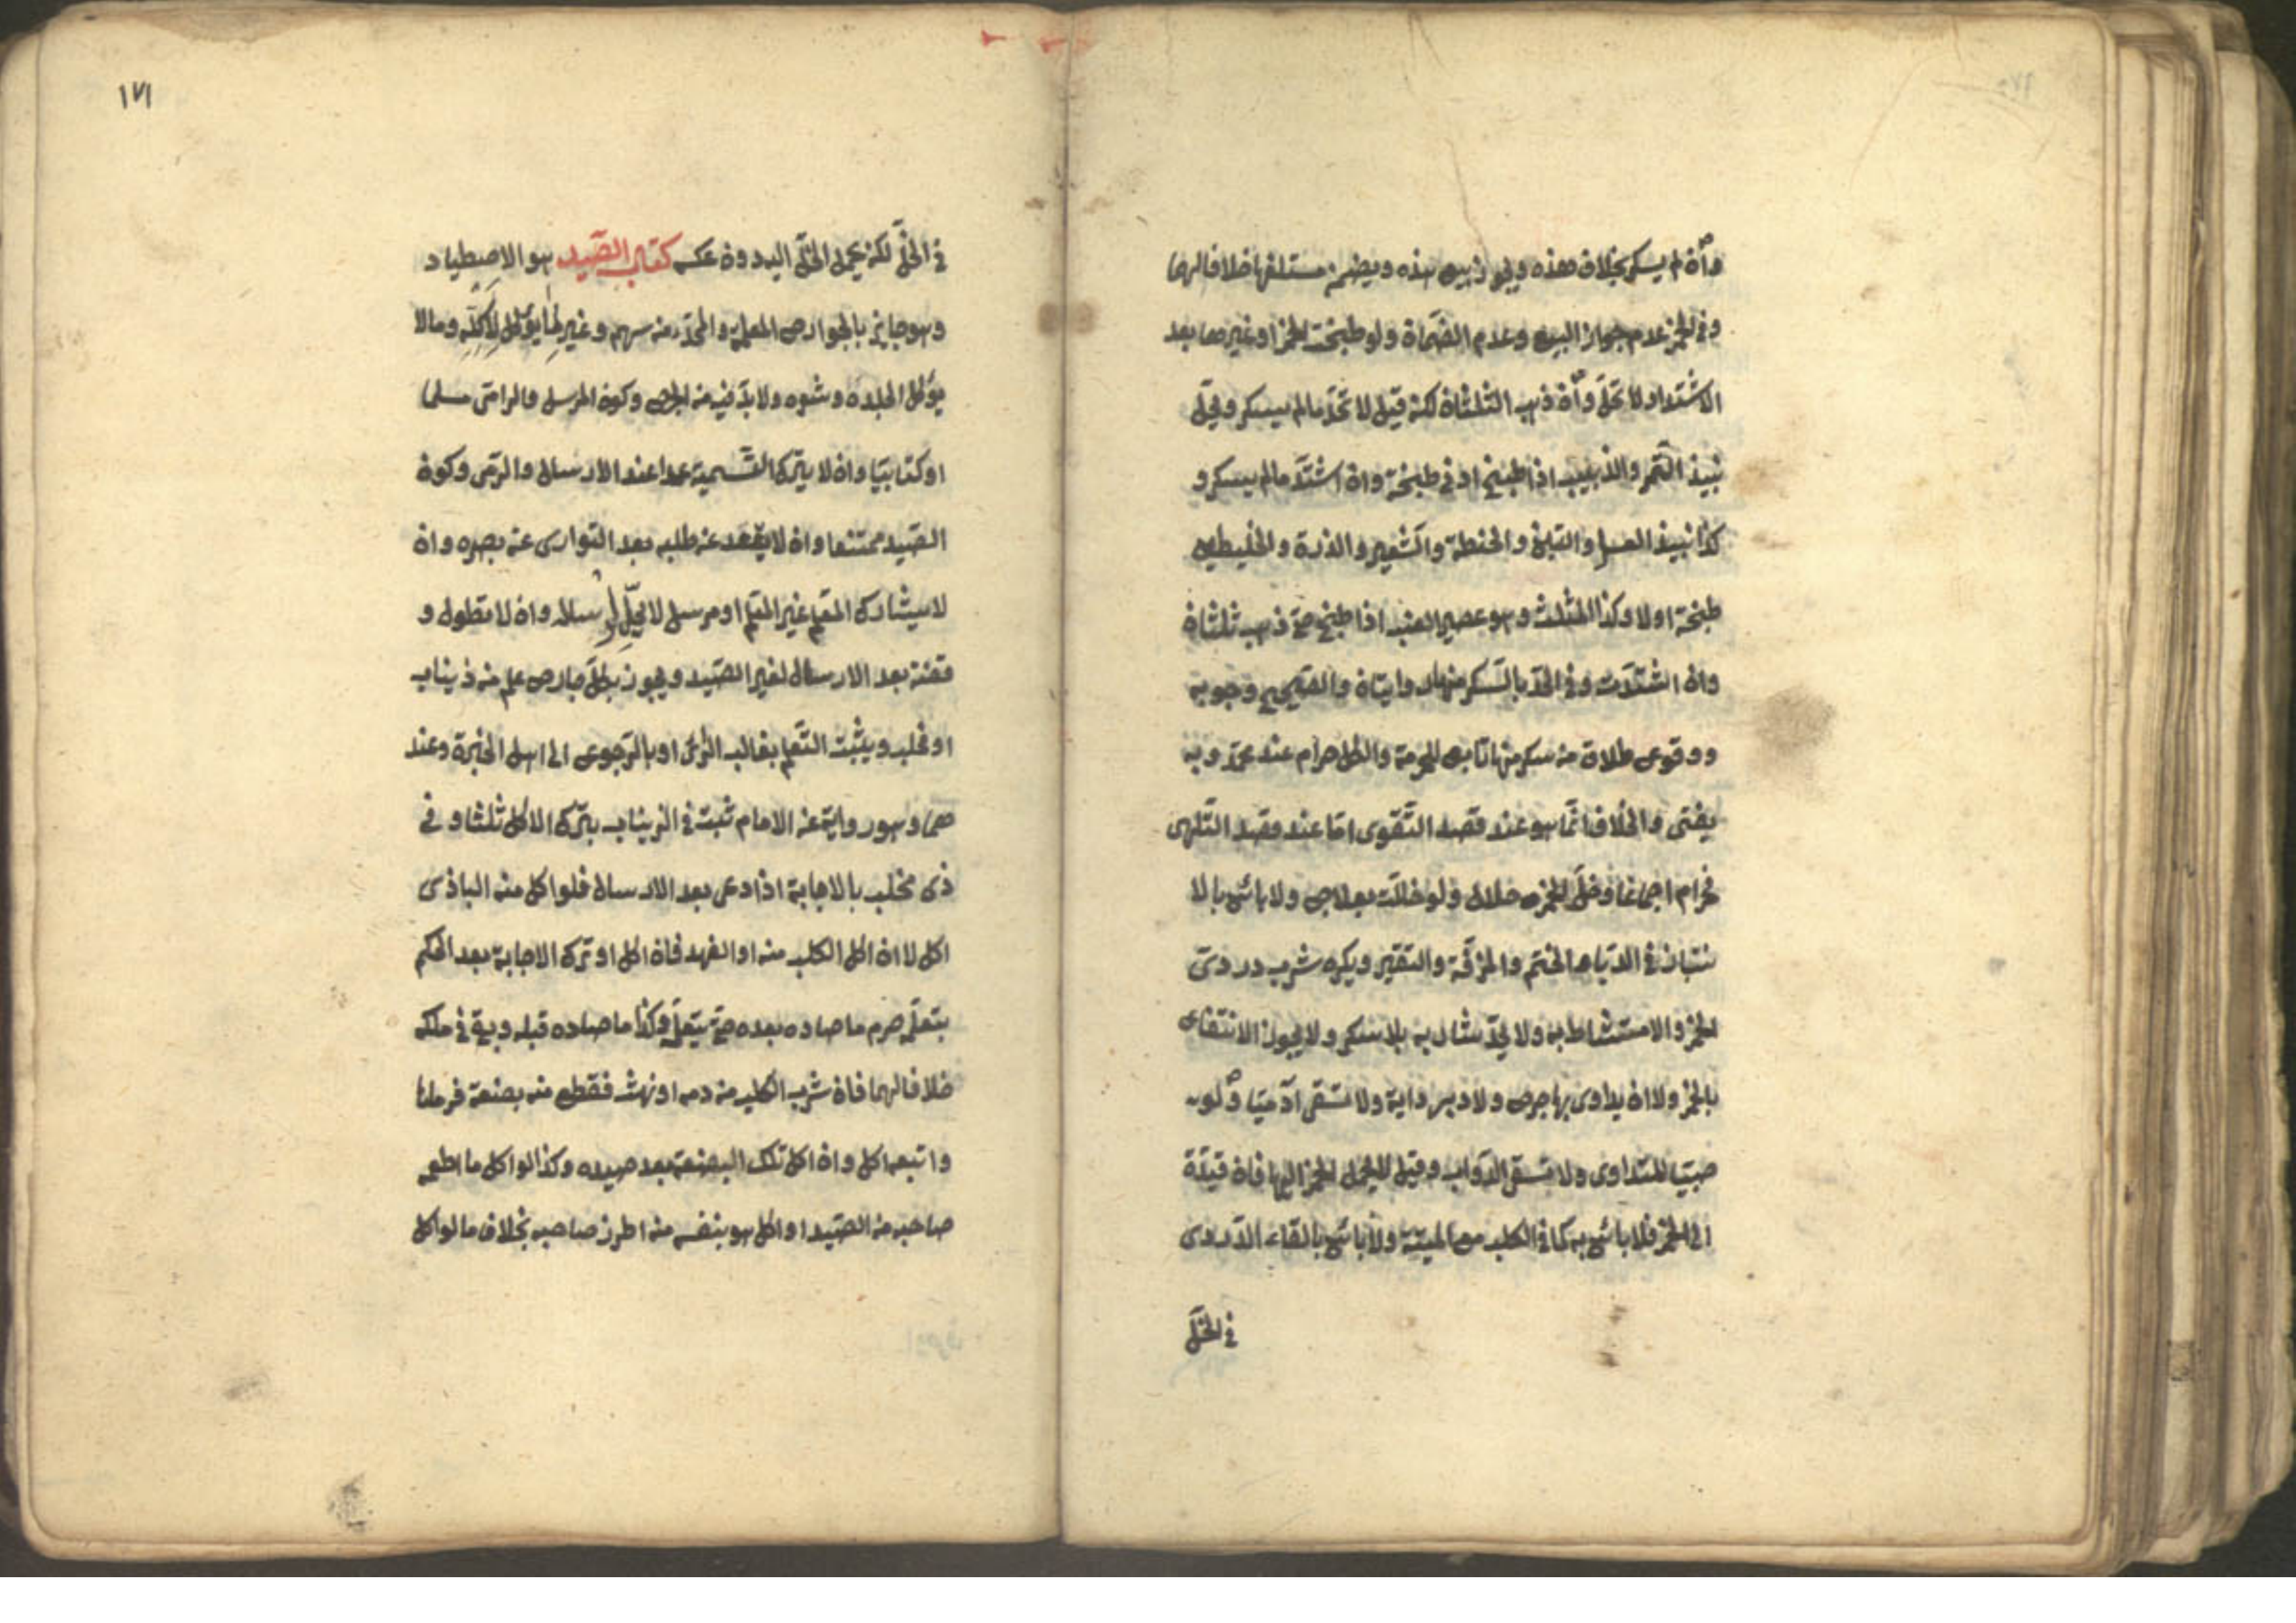 وان لم يسكر بخلاف هذه ويجوز بيع هذه ويضمن متلفها خلافا لهما
وفي الخمر عدم جواز البيع وعدم الضمان ولو طبخت الخمر او غيرها بعد
الاشتداد لا تحل وان ذهب الثلثان لكن قيل لا تحد ما لم يسكر ويحل
نبيذ التمر والزبيب اذا طبخ ادنى طبخة وان اشتد ما لم يسكر و
كذا نبيذ العسل والتين والحنطة والشعير والذرة والخليطين
طبخت اولا وكذا المثلث وهو عصير العنب اذا طبخ حتى ذهب ثلثاه
وان اشتدت وفي الحد بالسكر منها روايتان والصحيح وجوبه
ووقوع طلاق من سكر منها تابع للحرمة والكل حرام عند محمد وبه
يفتى والخلاف انما هو عند قصد التقوى اما عند قصد التلهى
فحرام اجماعا وخل الخمر حلال ولو خللت بعلاج ولا بأس بالا
نتباذ في الدباء والحنتم والمزفت والنقير ويكره شرب دردى
الخمر والامتشاط به ولا يحد شاربه بلا سكر ولا يجوز الانتفاع
بالخمر ولا ان يداوى بها جرح ولا دبر دابة ولا تسقى آدميا ولو
صبيا للتداوى ولا تسقى الدواب وقيل لا يحمل الخمر اليها فان قيدت
الى الخمر فلا بأس به كما في الكلب مع الميتة ولا بأس بالقاء الدردى
في الخل
١٧١
في الخل لكن يحمل الخل اليه دون عكسه كتاب الصيد هو الاصطياد
وهو جايز بالجوارح المعلمة والمحدد من سهم وغيره لما يؤكل لاكله وما لا
يؤكل لجلده وشعره ولا بد فيه من الجرح وكون المرسل والرامى مسلما
او كتابيا وان لا يترك التسمية عمدا عند الارسال والرمى وكون
الصيد ممتنعا وان لا يقعد عن طلبه بعد التوارى عن بصره وان
لا يشارك المعلم غير المعلم او مرسل لا يحل ارساله وان لا تطول و
قفته بعد الارسال لغير الصيد ويجوز بكل جارح علم من ذى ناب
او مخلب ويثبت التعلم بغالب الرأى او بالرجوع الى اهل الخبرة وعند
هما وهو رواية عن الامام تثبت في ذى ناب بترك الاكل ثلثا وفي
ذى مخلب بالاجابة اذا دعى بعد الارسال فلو اكل منه البازى
اكل لا ان اكل الكلب منه او الفهد فان اكل او ترك الاجابة بعد الحكم
بتعلمه حرم ما صاده بعده حتى يتعلم وكذا ما صاده قبله وبقى في ملكه
خلافا لهما فان شرب الكلب من دمه او نهشه فقطع منه بضعة فرماها
واتبعه اكل وان اكل تلك البضعة بعد صيده وكذا لو اكل ما اطعمه
صاحبه من الصيد او اكل هو بنفسه منه احرز صاحبه بخلاف ما لو اكل